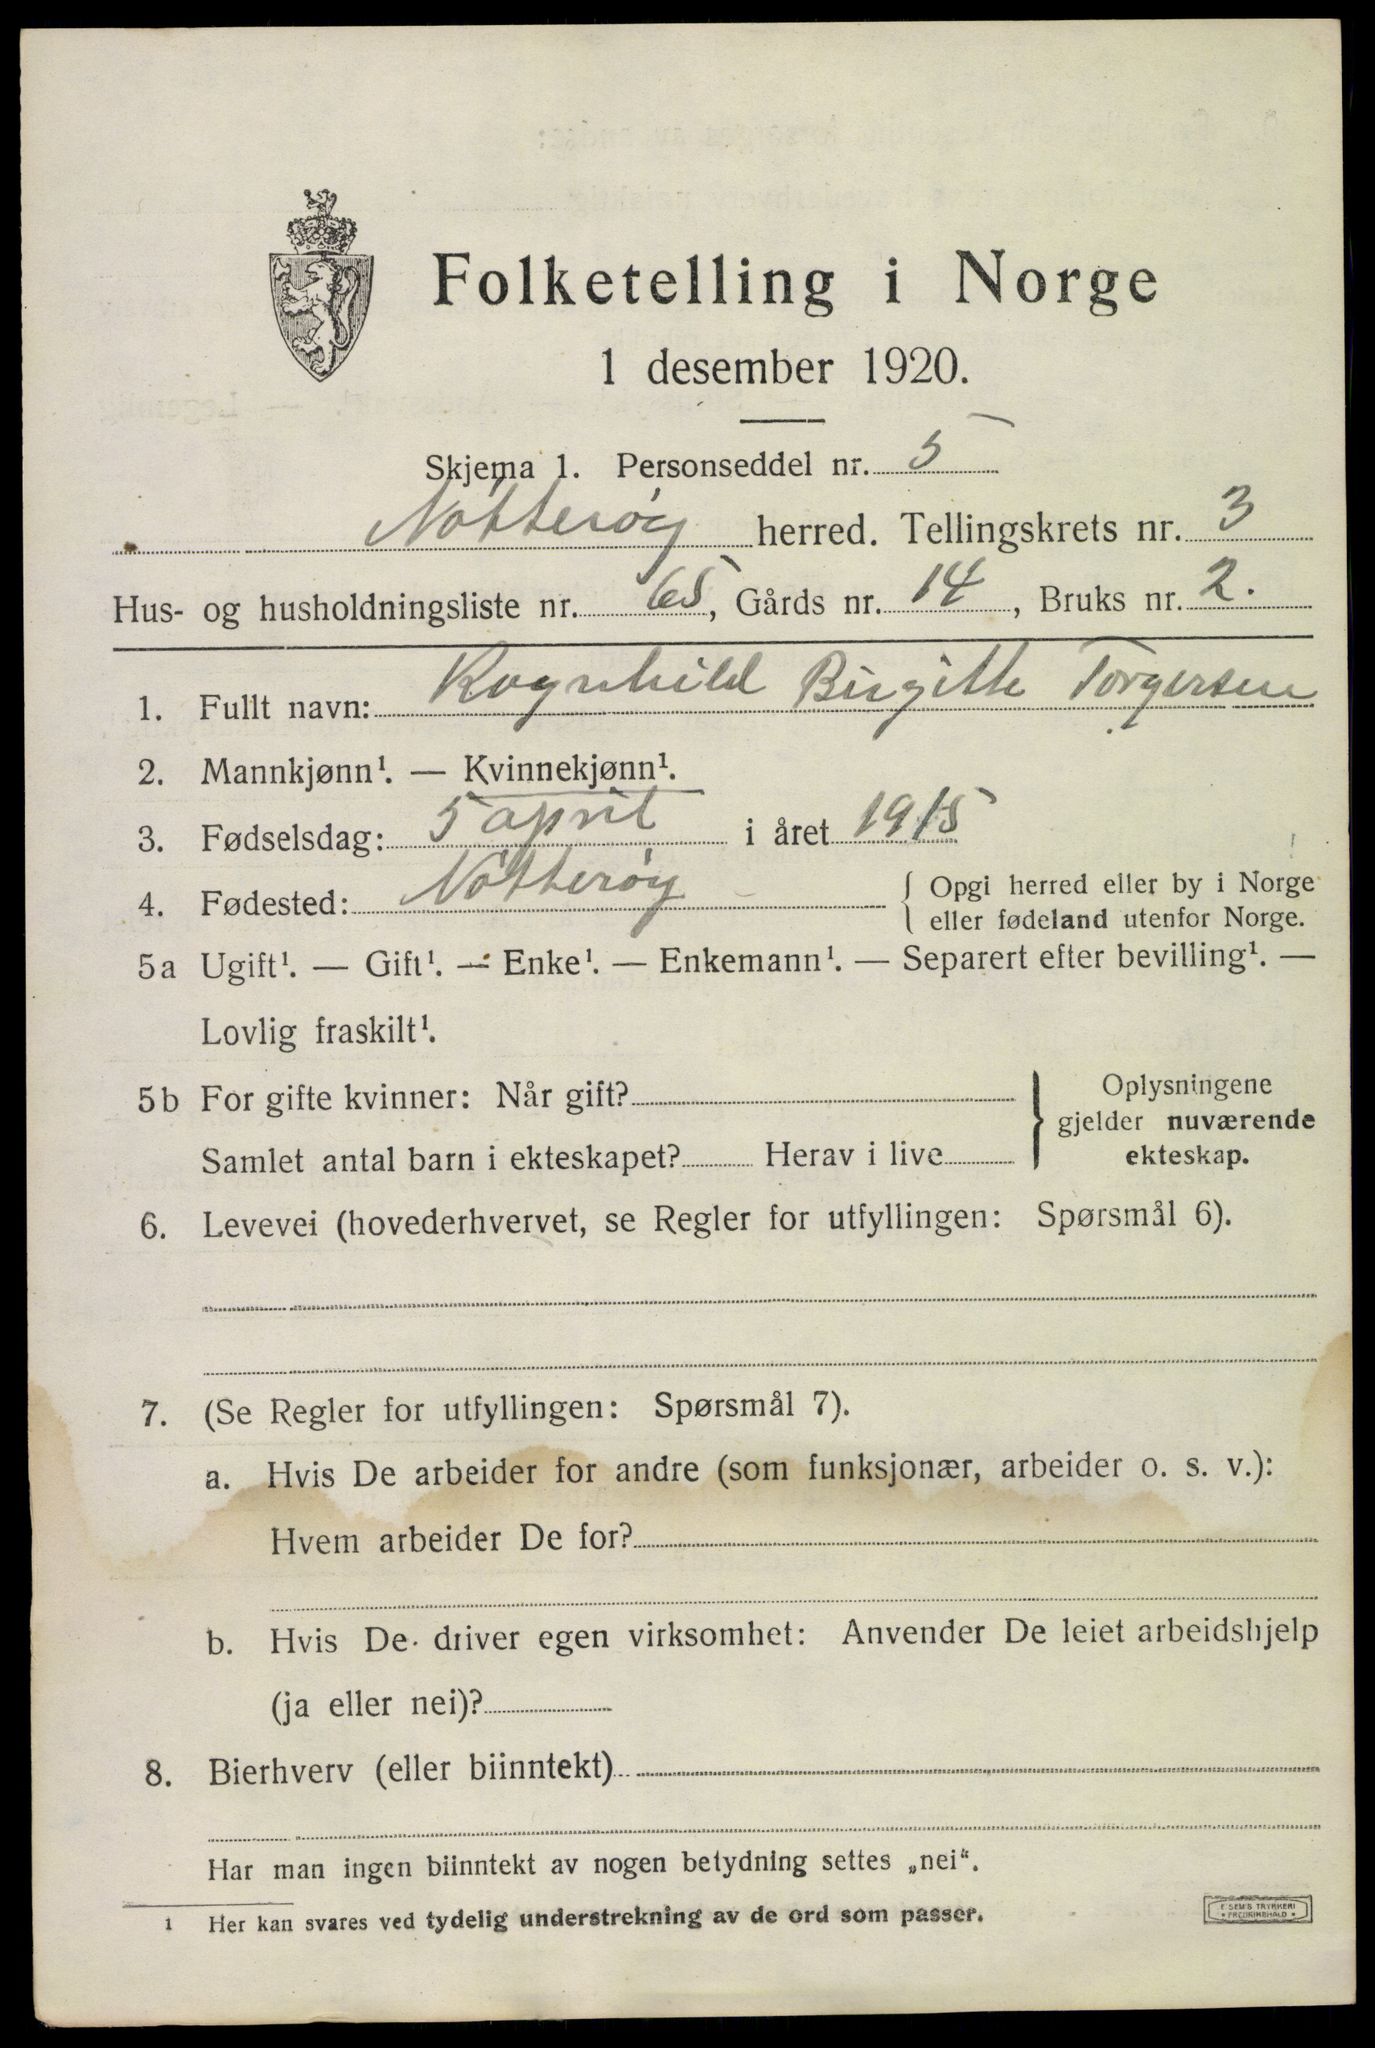 Folketelling i Norge
1 desember 1920.
Skjema 1. Personseddel nr. 5
Nøtterøy herred. Tellingskrets nr. 3
Hus- og husholdningsliste nr. 65, Gårds nr. 14, Bruks nr. 2.
1. Fullt navn: Ragnhild Birgitte Torgersen
2. Mannkjønn¹. — Kvinnekjønn¹.
3. Fødselsdag: 5 april i året 1915
4. Fødested: Nøtterøy { Opgi herred eller by i Norge
eller fødeland utenfor Norge.
5a Ugift¹. — Gift¹. — Enke¹. — Enkemann¹. — Separert efter bevilling¹. —
Lovlig fraskilt¹.
5b For gifte kvinner: Når gift? } Oplysningene
gjelder nuværende
Samlet antal barn i ekteskapet? Herav i live ekteskap.
6. Levevei (hovederhvervet, se Regler for utfyllingen: Spørsmål 6).
7. (Se Regler for utfyllingen: Spørsmål 7).
a. Hvis De arbeider for andre (som funksjonær, arbeider o. s. v.):
Hvem arbeider De for?
b. Hvis De driver egen virksomhet: Anvender De leiet arbeidshjelp
(ja eller nei)?
8. Bierhverv (eller biinntekt)
Har man ingen biinntekt av nogen betydning settes „nei“.
1 Her kan svares ved tydelig understrekning av de ord som passer.
E SEM'S TRYKKERI
* FREDRIKSHALD *